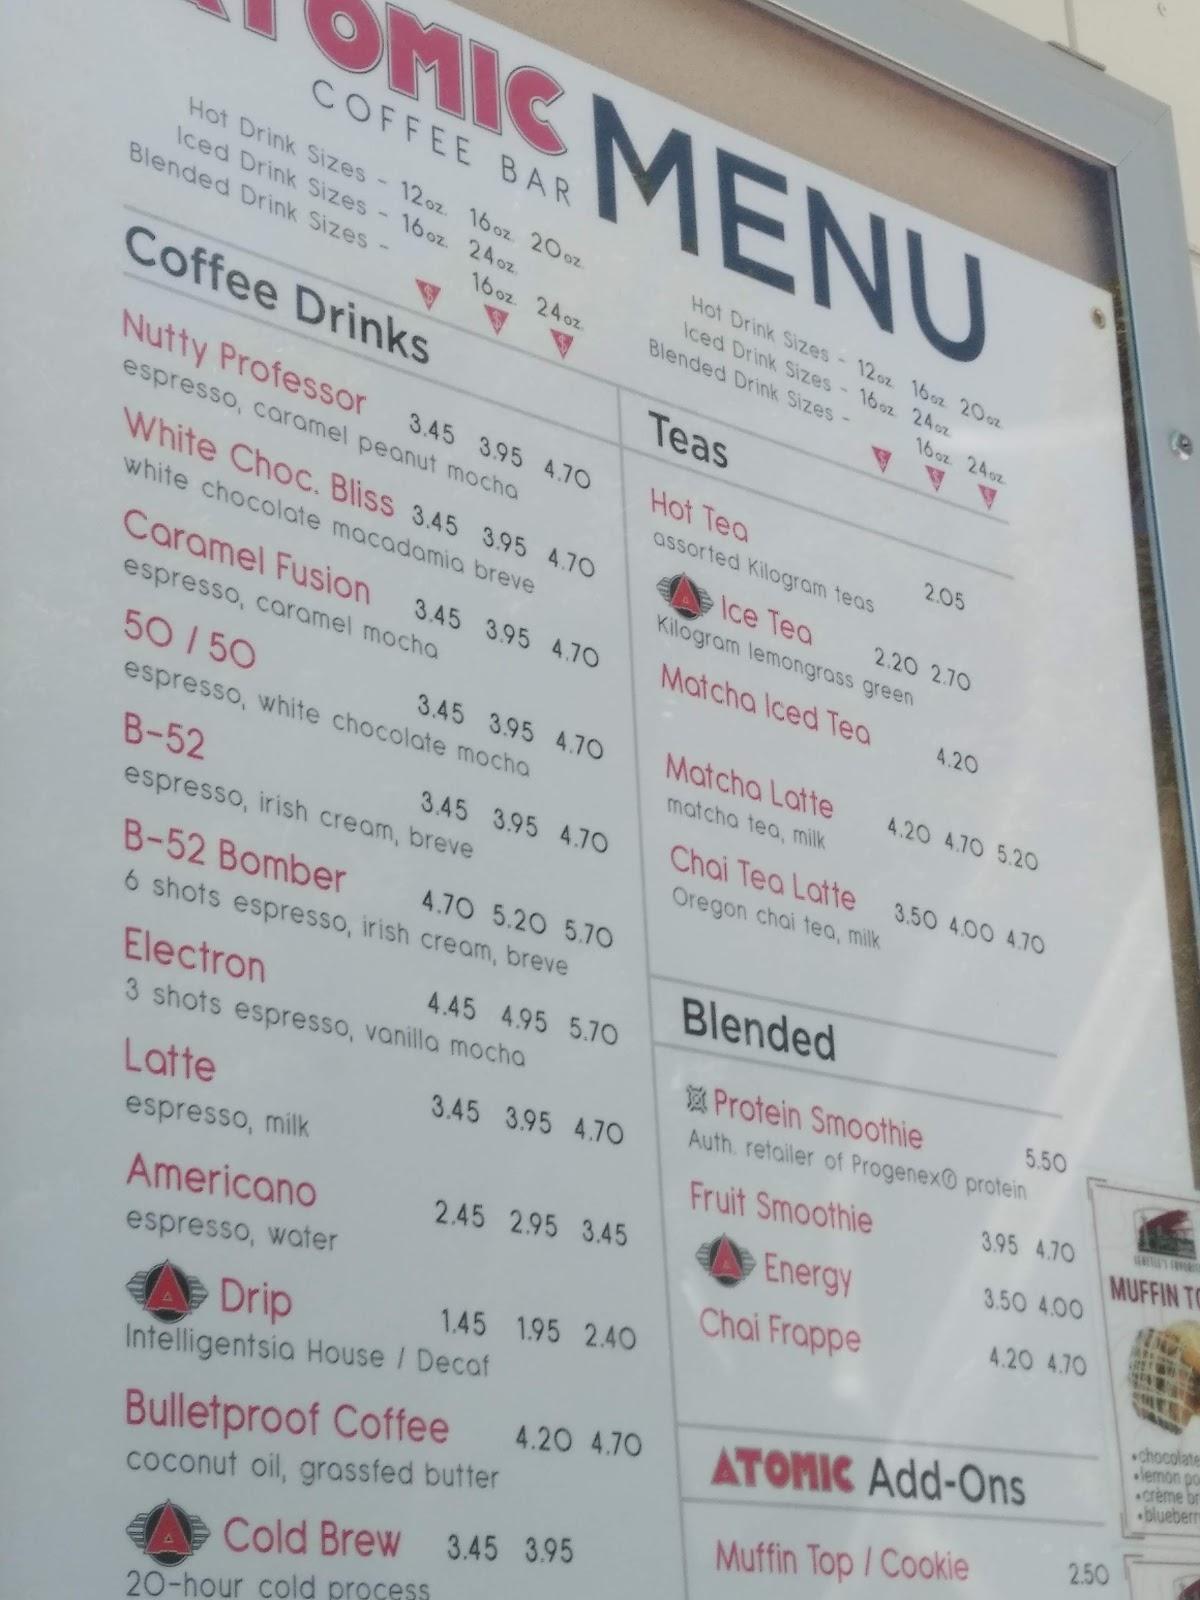 ATOMIC
COFFEE BAR
MENU
Hot Drink Sizes - 12oz. 16oz. 20oz.
Iced Drink Sizes - 16oz. 24oz.
Blended Drink Sizes - 16oz. 24oz.
$ $ $
Coffee Drinks
Nutty Professor 3.45 3.95 4.70
espresso, caramel peanut mocha
White Choc. Bliss 3.45 3.95 4.70
white chocolate macadamia breve
Caramel Fusion 3.45 3.95 4.70
espresso, caramel mocha
50 / 50 3.45 3.95 4.70
espresso, white chocolate mocha
B-52 3.45 3.95 4.70
espresso, irish cream, breve
B-52 Bomber 4.70 5.20 5.70
6 shots espresso, irish cream, breve
Electron 4.45 4.95 5.70
3 shots espresso, vanilla mocha
Latte 3.45 3.95 4.70
espresso, milk
Americano 2.45 2.95 3.45
espresso, water
A Drip 1.45 1.95 2.40
Intelligentsia House / Decaf
Bulletproof Coffee 4.20 4.70
coconut oil, grassfed butter
A Cold Brew 3.45 3.95
20-hour cold process
Hot Drink Sizes - 12oz. 16oz. 20oz.
Iced Drink Sizes - 16oz. 24oz.
Blended Drink Sizes - 16oz. 24oz.
$ $ $
Teas
Hot Tea 2.05
assorted Kilogram teas
A Ice Tea 2.20 2.70
Kilogram lemongrass green
Matcha Iced Tea 4.20
Matcha Latte 4.20 4.70 5.20
matcha tea, milk
Chai Tea Latte 3.50 4.00 4.70
Oregon chai tea, milk
Blended
Protein Smoothie 5.50
Auth. retailer of Progenex® protein
Fruit Smoothie 3.95 4.70
A Energy 3.50 4.00
Chai Frappe 4.20 4.70
ATOMIC Add-Ons
Muffin Top / Cookie 2.50
MUFFIN TO
•chocolate
•lemon po
•crème br
•blueberr